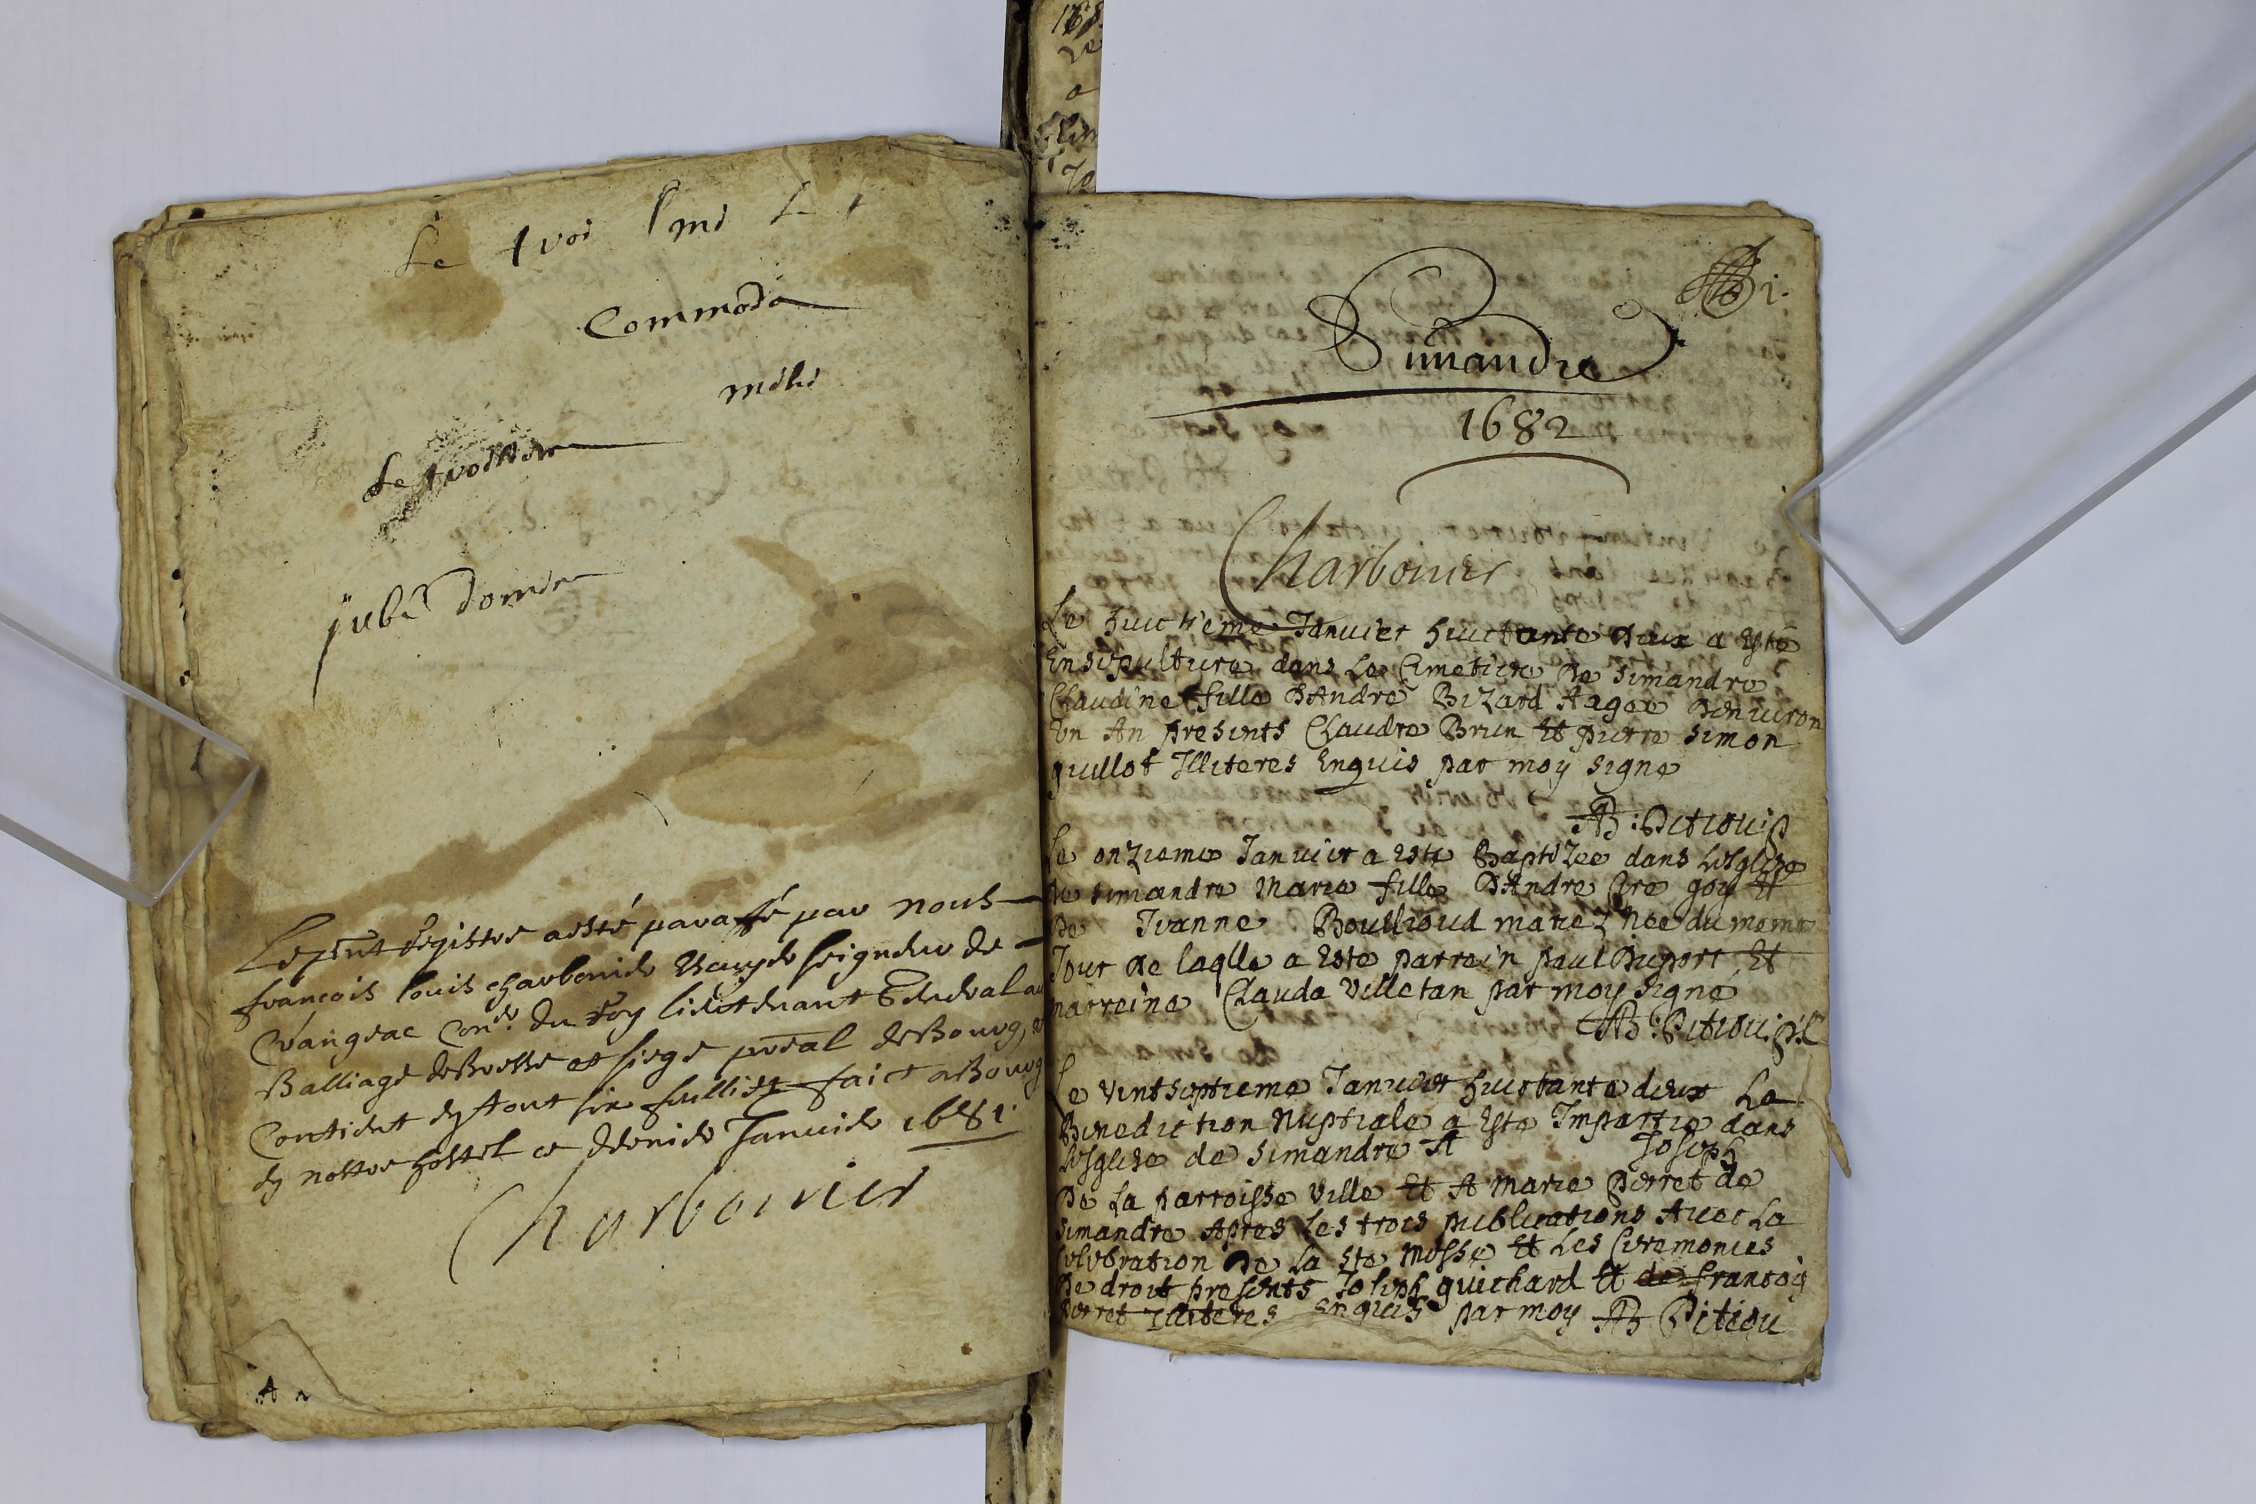 Le
Commoda
mihi
jube domne
Le pnt registre a esté paraffé par nous
françois louis charbonier seigneur de
Crangeac Con.er du roy lieutenant general au
Balliage de Bresse et siege pnal de Bourg, et
Contient en tout six feullietz faict a Bourg
en nostre hostel ce dernier Januier 1681.
Charbonier
A
1.
Simandre
1682
Charbonier
Le huictieme Januier huictante deux a esté
En sepulture dans Le Cimetiere De simandre
Claudine fille D'Andre Bizard Aagee Denuiron
Un An presents Claudre Brun Et pierre simon
guillot Illiteres Enquis par moy signe
AB: Pitiou p
Le onzieme Januier a este Baptizee dans Lesglize
de simandre Marie fille D'Andre Cre goy Et
De Jeanne Boullioud mariez Nee du meme
Jour de laqlle a este parrein paul Duport Et
marreine Clauda Villetan par moy signé
AB: Pitiou p.c
Le vintseptieme Januier huictante deux La
Benediction Nuptiale a este Impartie dans
Lesglize de simandre A Joseph
De La parroisse Ville Et A Marie Perret de
simandre Apres Les trois publications Auec La
Celebration De La ste Messe Et Les Ceremonies
De droit presents Joseph guichard Et de francois
perret Illiteres Enquis par moy AB Pitiou